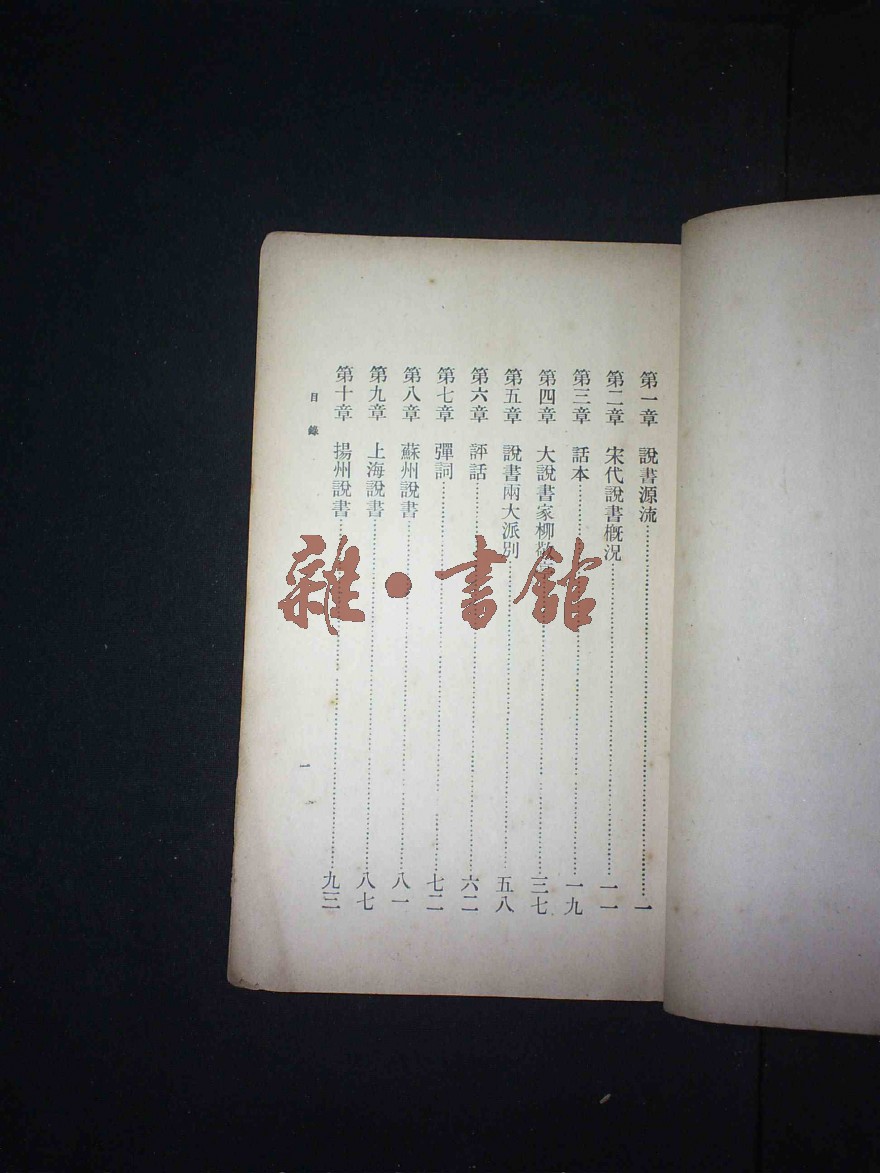 第一章 說書源流……一
第二章 宋代說書概況……一一
第三章 話本……一九
第四章 大說書家柳敬……三七
第五章 說書兩大派別……五八
第六章 評話……六二
第七章 彈詞……七二
第八章 蘇州說書……八一
第九章 上海說書……八七
第十章 揚州說書……九三
目錄
一
雜·書館